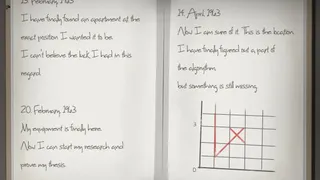 February, 1963
I have finally found an apartment at the
exact position I wanted it to be.
I can't believe the luck I had in this
regard.
20. February, 1963
My equipment is finally here.
Now I can start my research and
prove my thesis.
April, 1963
Now I am sure of it. This is the location.
I have finally figured out a part of
the algorythm,
but something is still missing.
0